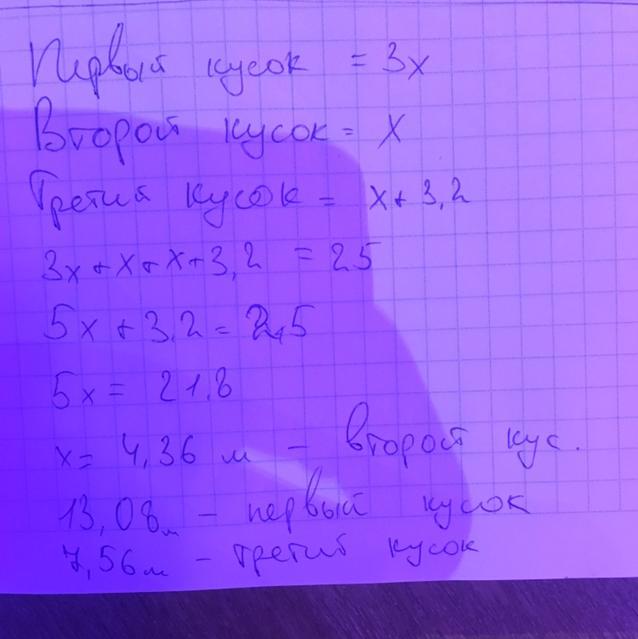 Первый кусок = 3x
Второй кусок = x
Третий кусок = x + 3,2
3x + x + x + 3,2 = 25
5x + 3,2 = 25
5x = 21,8
x = 4,36 м - второй кус.
13,08 м - первый кусок
7,56 м - третий кусок